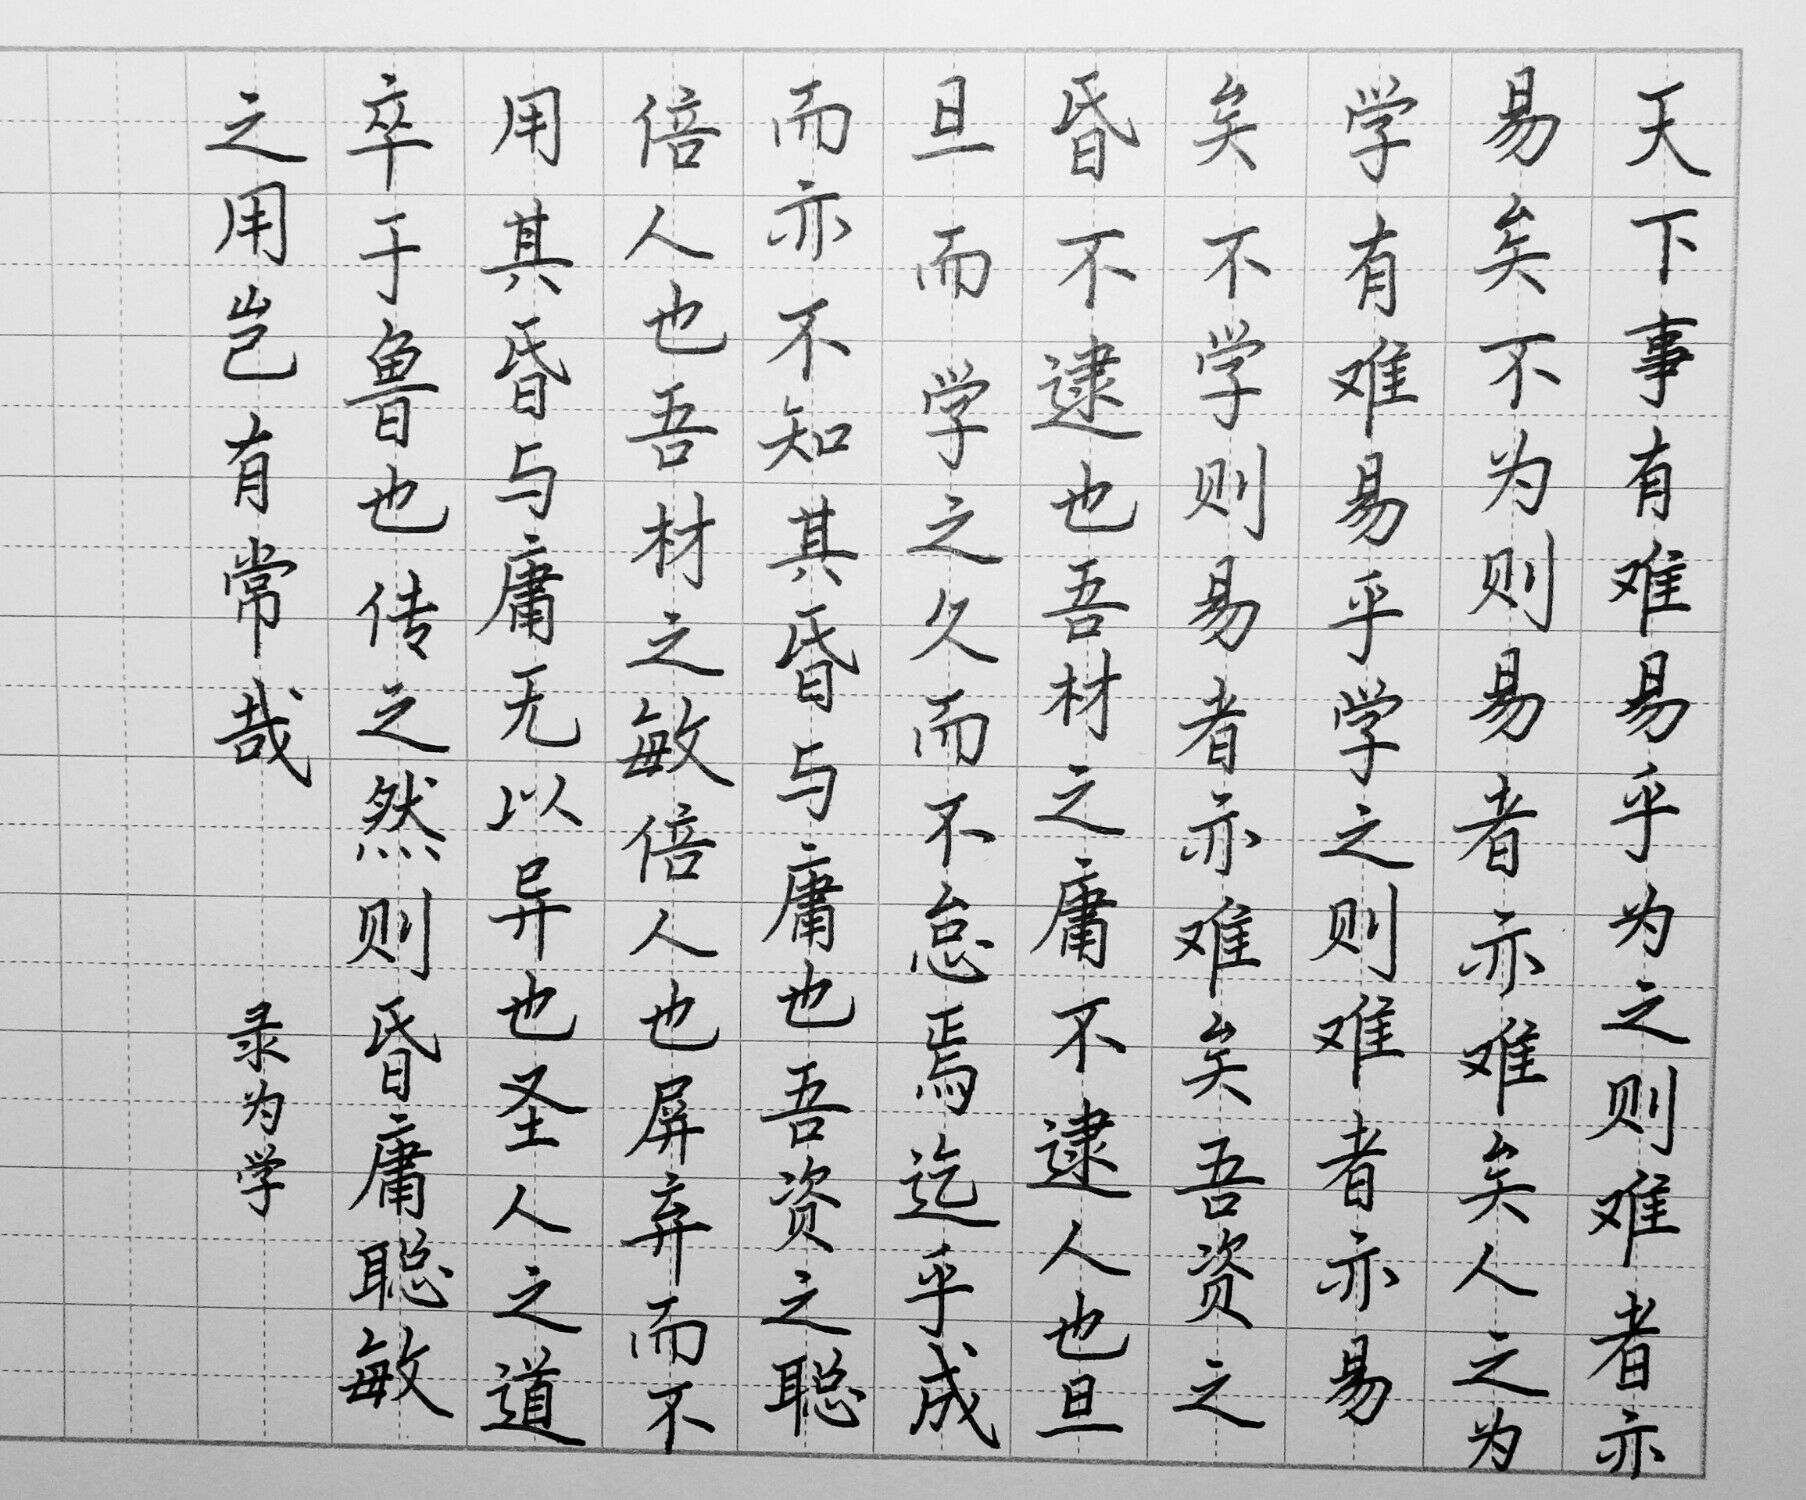 天下事有难易乎为之则难者亦
易矣不为则易者亦难矣人之为
学有难易乎学之则难者亦易
矣不学则易者亦难矣吾资之
昏不逮也吾材之庸不逮人也旦
旦而学之久而不怠焉迄乎成
而亦不知其昏与庸也吾资之聪
倍人也吾材之敏倍人也屏弃而不
用其昏与庸无以异也圣人之道
卒于鲁也传之然则昏庸聪敏
之用岂有常哉
录为学